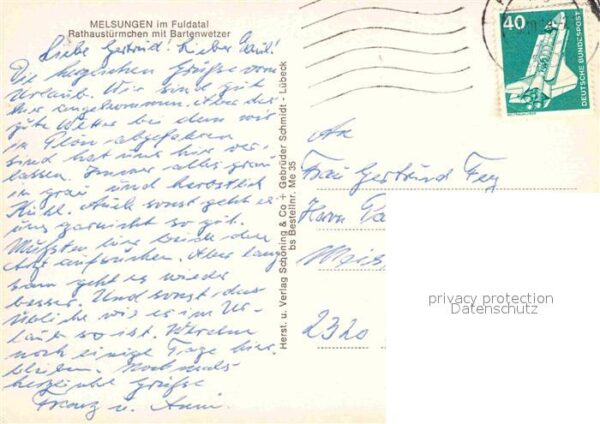 MELSUNGEN im Fuldatal
Rathaustürmchen mit Bartenwetzer
Liebe Gertrud! Lieber Paul!
Die herzlichen Grüße vom
Urlaub. Wir sind gut
hier angekommen. Aber das
gute Wetter bei dem wir
in Plön abgefahren
sind hat uns hier ver-
lassen. Immer alles grau
in grau und herbstlich
kühl. Auch sonst geht es
uns garnicht so gut.
Mußten hier beide den
Arzt aufsuchen. Aber lang-
sam geht es wieder
besser. Und sonst das
übliche wie es im Ur-
laub so ist. Werden
noch einige Tage hier
bleiben. Nochmals
herzliche Grüße
Franz u. Anni.
Herst. u. Verlag Schöning & Co + Gebrüder Schmidt - Lübeck
bs Bestellnr. Me 35
40
DEUTSCHE BUNDESPOST
An
Frau Gertrud Fey
Herrn
2320
privacy protection
Datenschutz